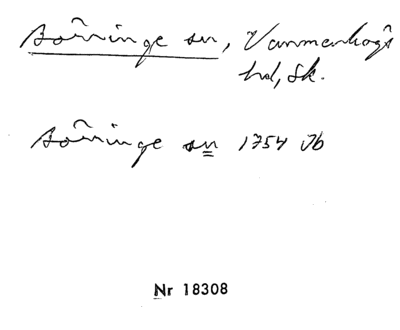 Börringe sn, Vemmenhögs
hd, Sk.
Börringe sn 1754 Jb
Nr 18308